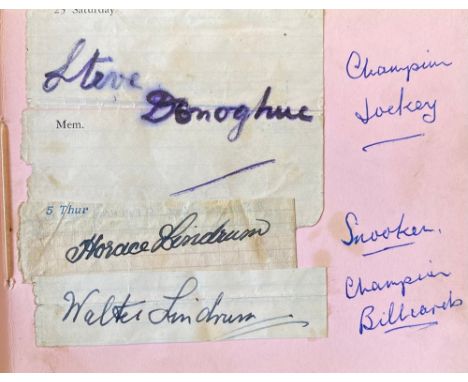 25 Saturday
Steve
Donoghue
Champion
Jockey
Mem.
5 Thur
Horace Lindrum
Snooker.
Walter Lindrum
Champion
Billiards